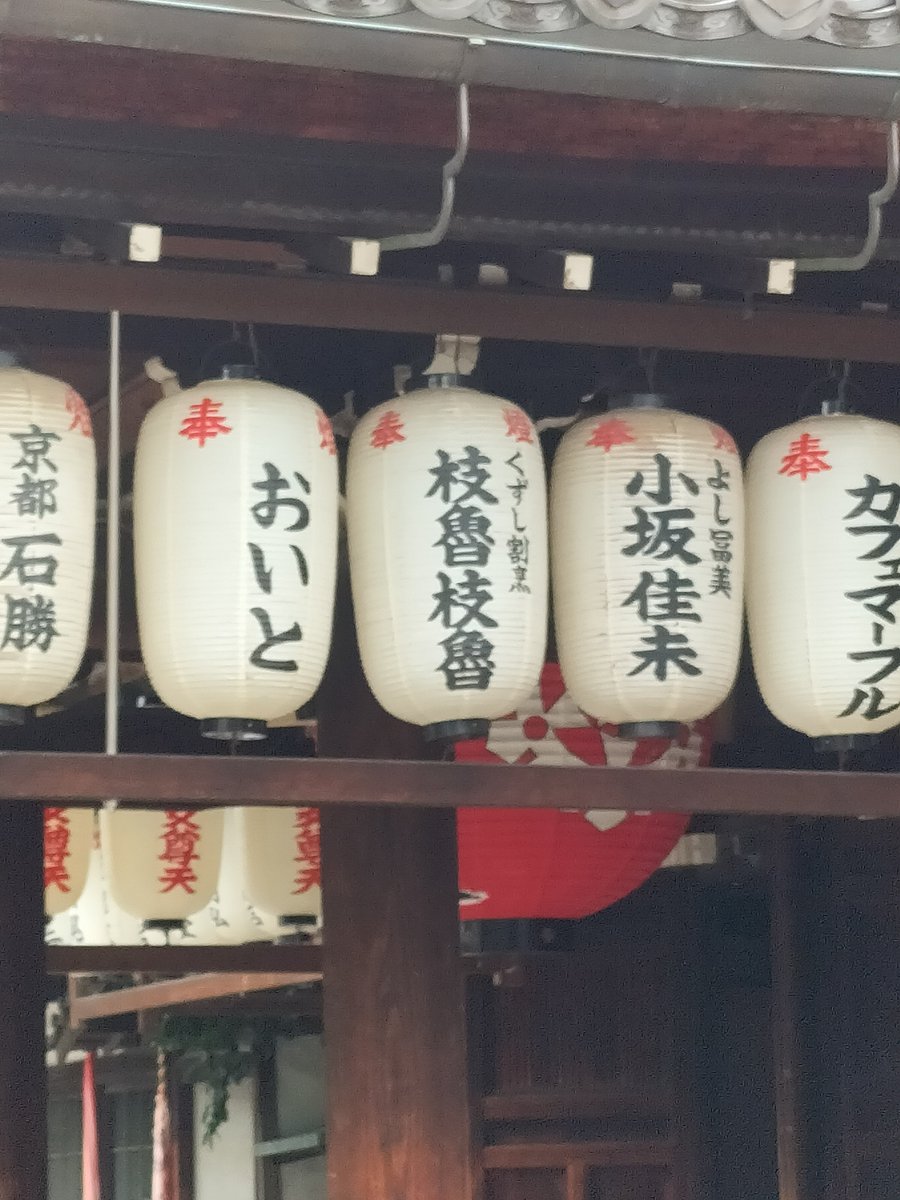 奉燈
京都 石勝
奉燈
おいと
奉燈
くずし割烹
枝魯枝魯
奉燈
よし冨美
小坂佳未
奉
カフェマーブル
尊天
尊天
尊天